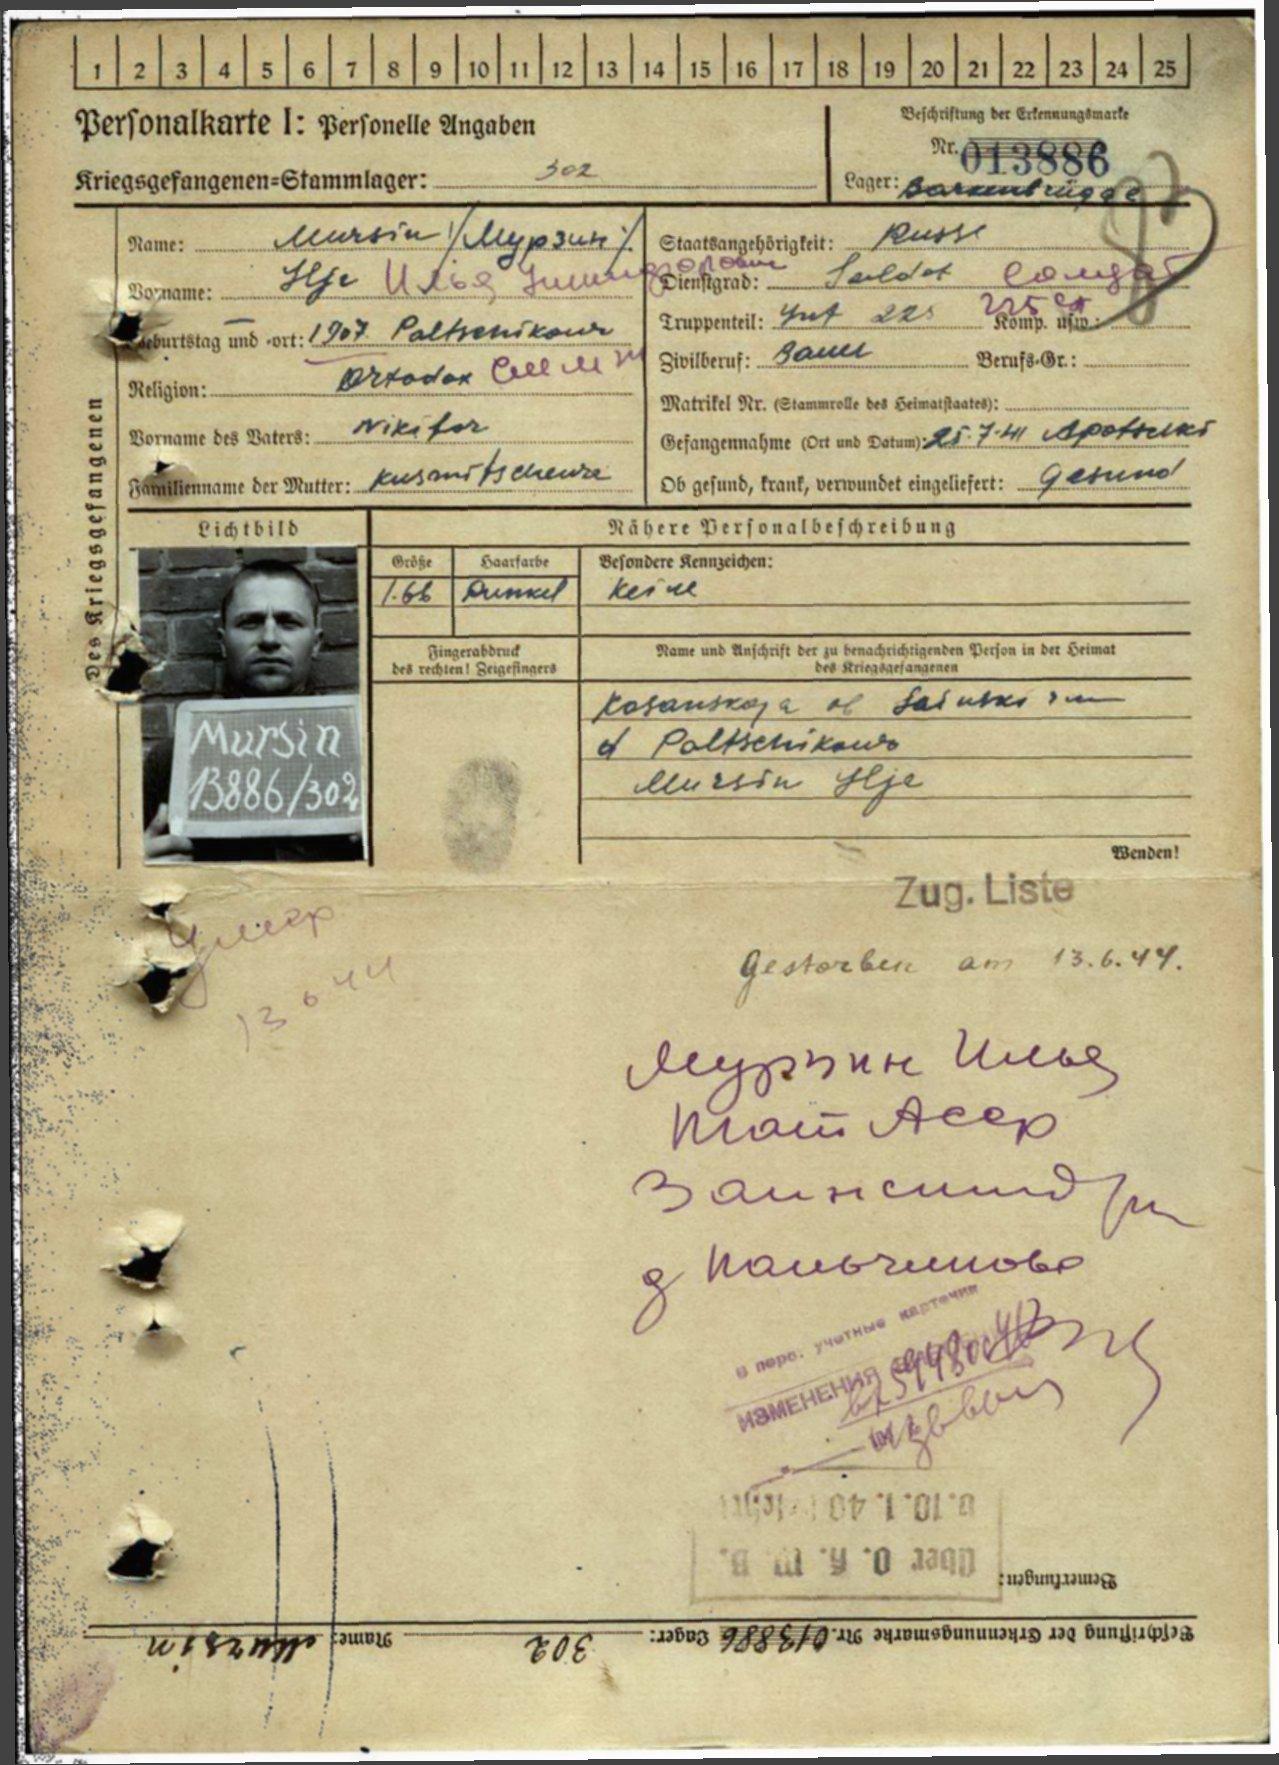 1 2 3 4 5 6 7 8 9 10 11 12 13 14 15 16 17 18 19 20 21 22 23 24 25
Personalkarte I: Personelle Angaben
Beschriftung der Erkennungsmarke
Nr. 013886
Kriegsgefangenen=Stammlager: 302
Lager: Barkenbrügge
Des Kriegsgefangenen
Name: Mursin /Мурзин/
Vorname: Ilje Илья
Geburtstag und -ort: 1907 Paltschikowa
Religion: Ortodox
Vorname des Vaters: Nikifor
Familienname der Mutter:
Staatsangehörigkeit: Russe
Dienstgrad: Soldat Солдат
Truppenteil: Inf 225 225 Komp. usw.:
Zivilberuf: Bauer Berufs-Gr.:
Matrikel Nr. (Stammrolle des Heimatstaates):
Gefangennahme (Ort und Datum): 25.7.41
Ob gesund, krank, verwundet eingeliefert: Gesund
Lichtbild
Nähere Personalbeschreibung
Größe Haarfarbe Besondere Kennzeichen:
1.66 Dunkel Keine
Fingerabdruck
des rechten! Zeigefingers
Name und Anschrift der zu benachrichtigenden Person in der Heimat
des Kriegsgefangenen
Kasanskaja
d Paltschikowo
Mursin Ilje
Mursin
13886/302
Wenden!
Zug. Liste
Умер
13 6 44
Gestorben am 13.6.44.
Мурзин Илья
Тат Асср
Заинский
д Пальчиково
в перс. учетные карточки
ИЗМЕНЕНИЯ
über O. K. W. B.
v. 10.1.40
Bemerkungen:
Beschriftung der Erkennungsmarke Nr. 013886 Lager: 302 Name: Mursin